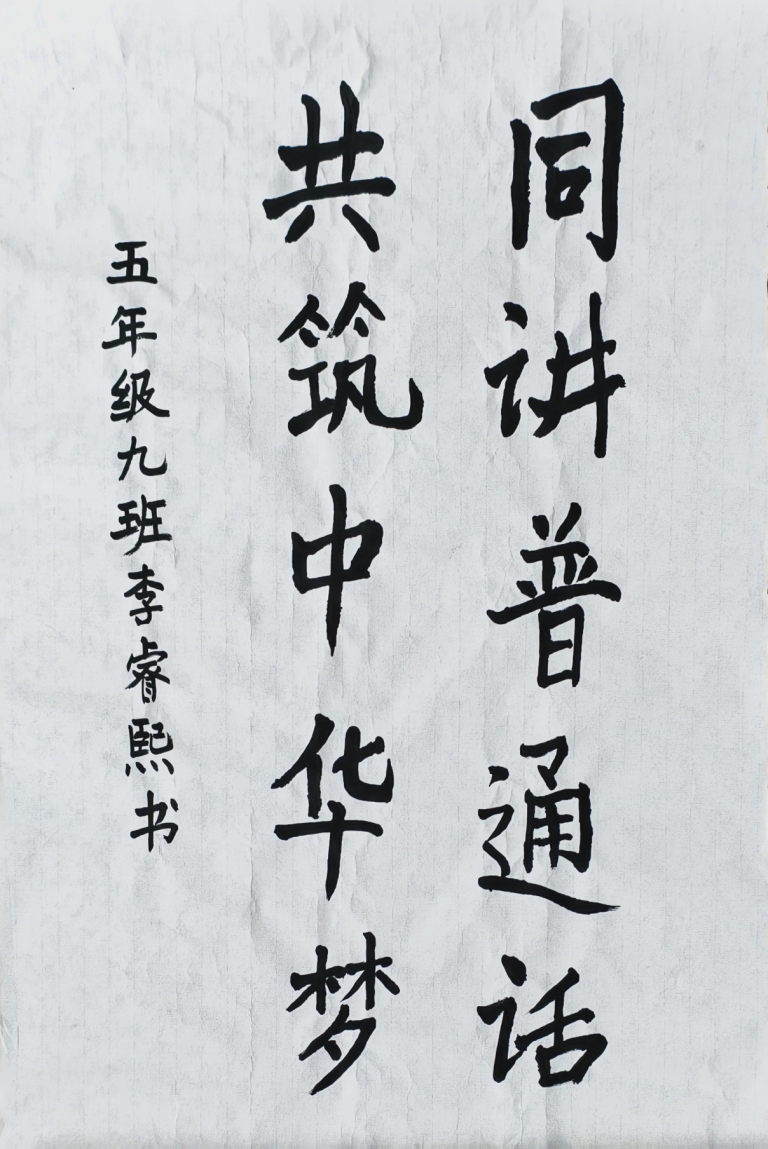 同讲普通话
共筑中华梦
五年级九班李睿熙书